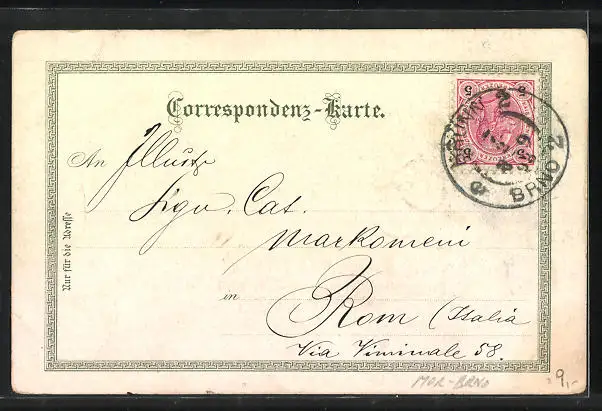 Correspondenz-Karte.
An Illustr
Sigv. Cat.
Markomeni
in Rom (Italia
Via Viminale 58.
Nur für die Adresse
BRNO 2
5
5
MOR-BRNO
9,-